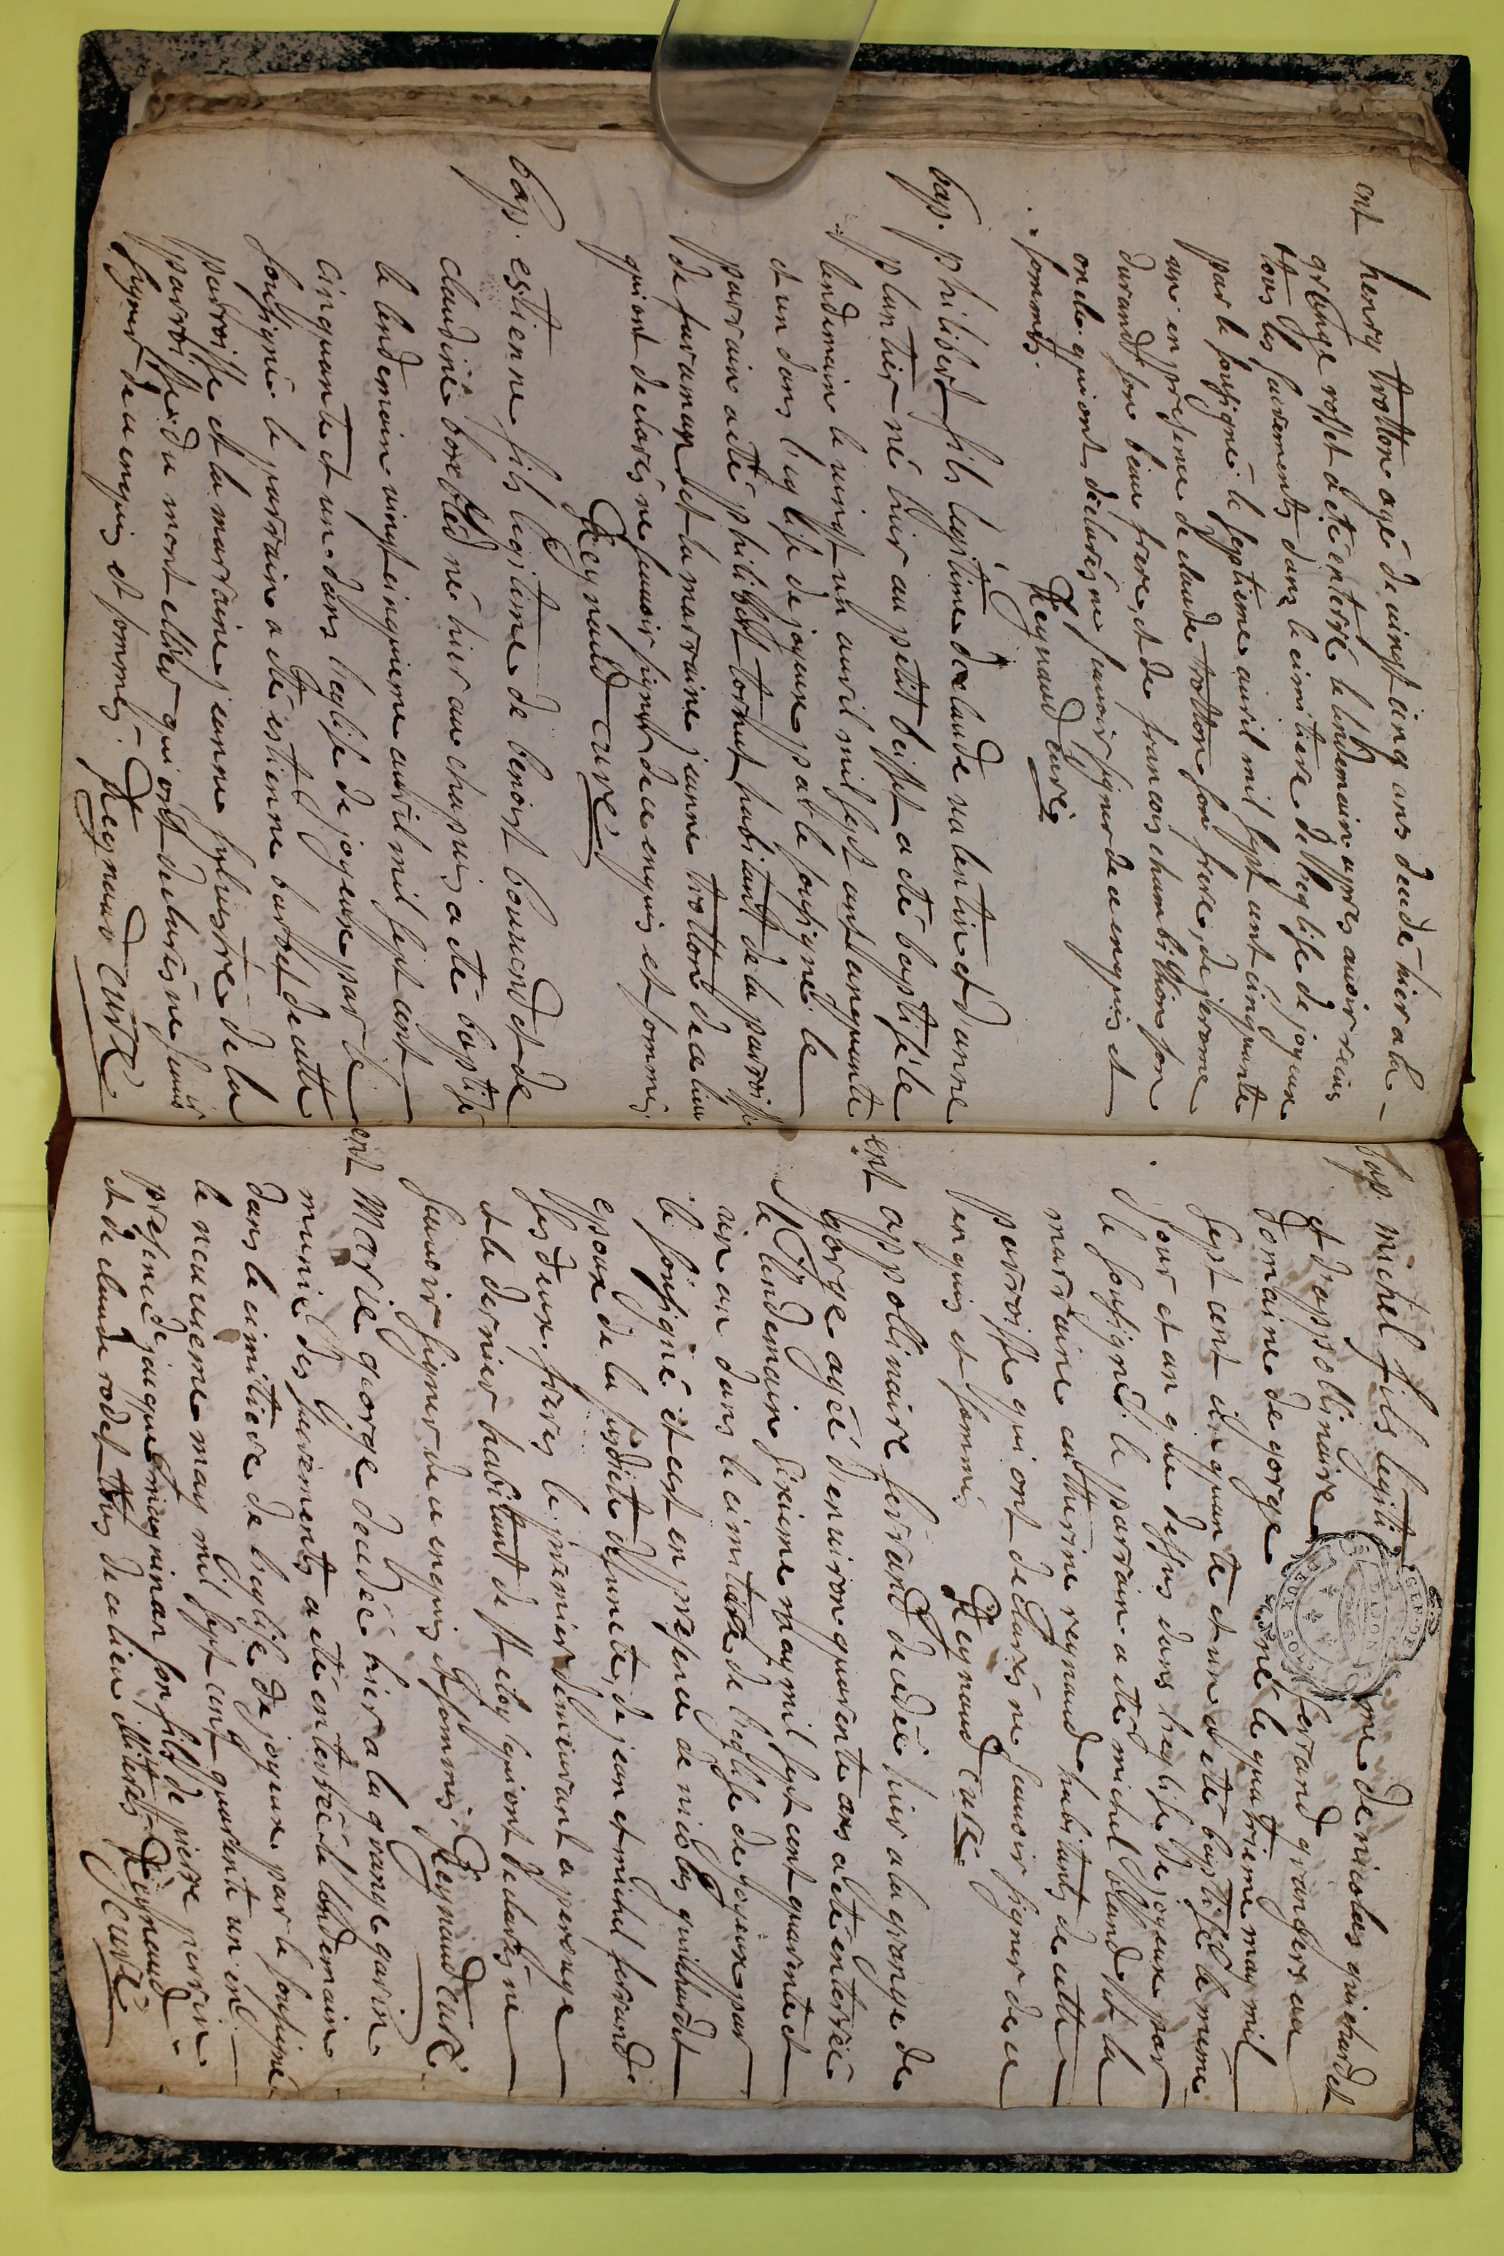 ent henry trotton agé de vingt cinq ans decede hier a la
grange rosset a ete enterré le lendemain apres avoir recus
tous les sacrements dans le cimitiere de l'heglise de joyeux
par le sousigné le septieme avril mil sept cent cinquante
un en presence de claude trotton son frere, de jerome
durand son beau frere, et de francois chambithion son
oncle qui ont déclarés ne savoir signer de ce enquis et
sommés. Reynaud curé
bap. philibert fils legitime de claude valentin et d'anne
plantier né hier au petit beisset a eté baptisé le
lendemain le vingt un avril mil sept cent cinquante
et un dans l'eglise de joyeux par le sousigné. le
parrain a eté philibert tornut habitant de la parroisse
de faramans et la marraine jeanne trotton de ce lieu
qui ont declarés ne sçavoir signer de ce enquis et sommés
Reynaud curé
bap. estienne fils legitime de benoist bouvend et de
claudine borbled né hier au chapuis a ete baptisé
le lendemain vingt cinquieme avril mil sept cent
cinquante et un dans l'eglise de joyeux par le
sousigné le parrain a eté estienne barbet de cette
parroisse et la marraine jeanne sylvestre de la
parroisse du montellier qui ont declarés ne savoir
signer de ce enquis et sommés. Reynaud curé
bap. michel fils legitime de nicolas guichardet
et d'appollinaire ferrand grangers au
domaine de gorge né le quatrieme may mil
sept cent cinquante et un a eté baptisé le meme
jour et an que dessus dans l'heglise de joyeux par
le sousigné. le parrain a eté michel bland et la
marraine catherine reynaud habitants de cette
parroisse qui ont declarés ne sçavoir signer de ce
enquis et sommés Reynaud curé
ent appollinaire ferrand decedée hier a la grange de
gorge agée d'environ quarante ans a eté enterrée
le lendemain sixieme may mil sept cent quarante et
un an dans le cimitiere de l'eglise de joyeux par
le sousigné et cest en presence de nicolas guichardet
epoux de la susdite deffunte, de jean et michel ferrand
ses deux freres le premier demeurant a perouge
et le dernier habitant de st eloy qui ont declarés ne
savoir signer de ce enquis et sommés Reynaud curé
ent Marie george decedée hier a la grange garin
munie des sacrements a eté enterrée le lendemain
dans le cimitiere de l'heglise de joyeux par le sousigné
le neuvieme may mil sept cent quarante un en
presence de jaque magninan son fils de pierre perrin
et de claude rodet tous de ce lieu illiterés Reynaud
curé